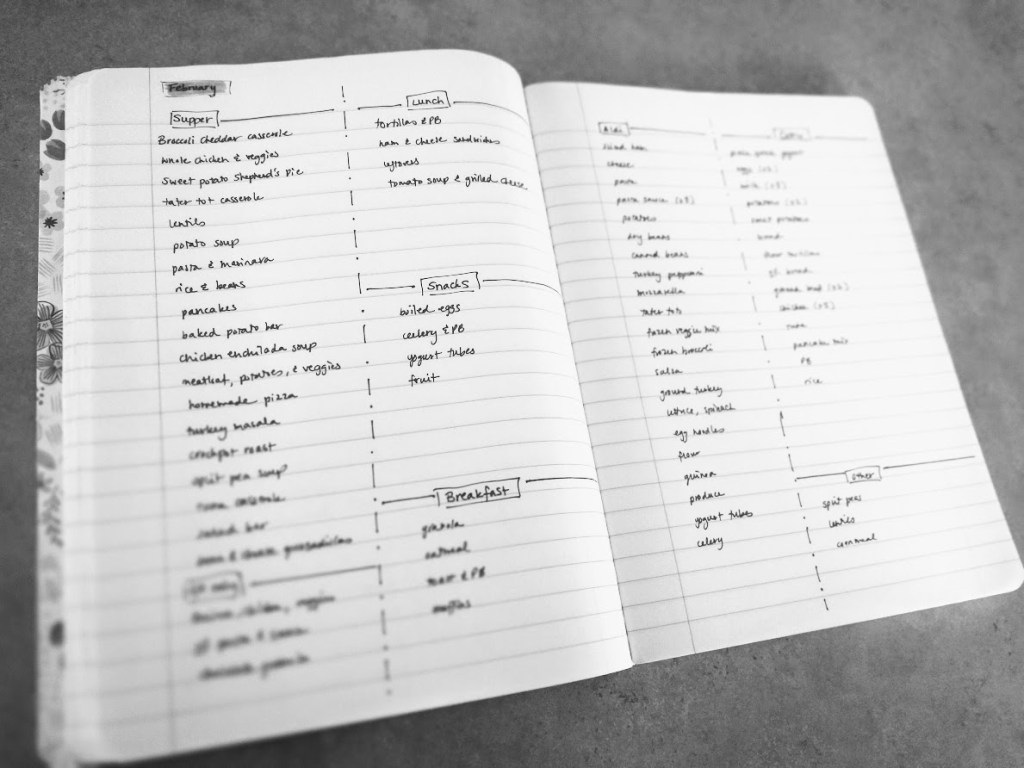 February
Supper
Broccoli cheddar casserole
whole chicken & veggies
Sweet potato Shepherd's Pie
tater tot casserole
lentils
potato soup
pasta & marinara
rice & beans
pancakes
baked potato bar
chicken enchilada soup
meatloaf, potatoes, & veggies
homemade pizza
turkey masala
crockpot roast
split pea soup
tuna casserole
salad bar
bean & cheese quesadillas
Lunch
tortillas & PB
ham & cheese sandwiches
leftovers
tomato soup & grilled cheese
Snacks
boiled eggs
celery & PB
yogurt tubes
fruit
Breakfast
granola
oatmeal
toast & PB
muffins
Aldi
sliced ham
cheese
pasta
pasta sauce (x8)
potatoes
dry beans
canned beans
turkey pepperoni
mozzarella
tater tots
frozen veggie mix
frozen broccoli
salsa
ground turkey
lettuce, spinach
egg noodles
flour
quinoa
produce
yogurt tubes
celery
Costco
plain greek yogurt
eggs
milk
potatoes
sweet potatoes
bread
flour tortillas
gf bread
ground beef
chicken
tuna
pancake mix
PB
rice
other
split peas
lentils
cornmeal